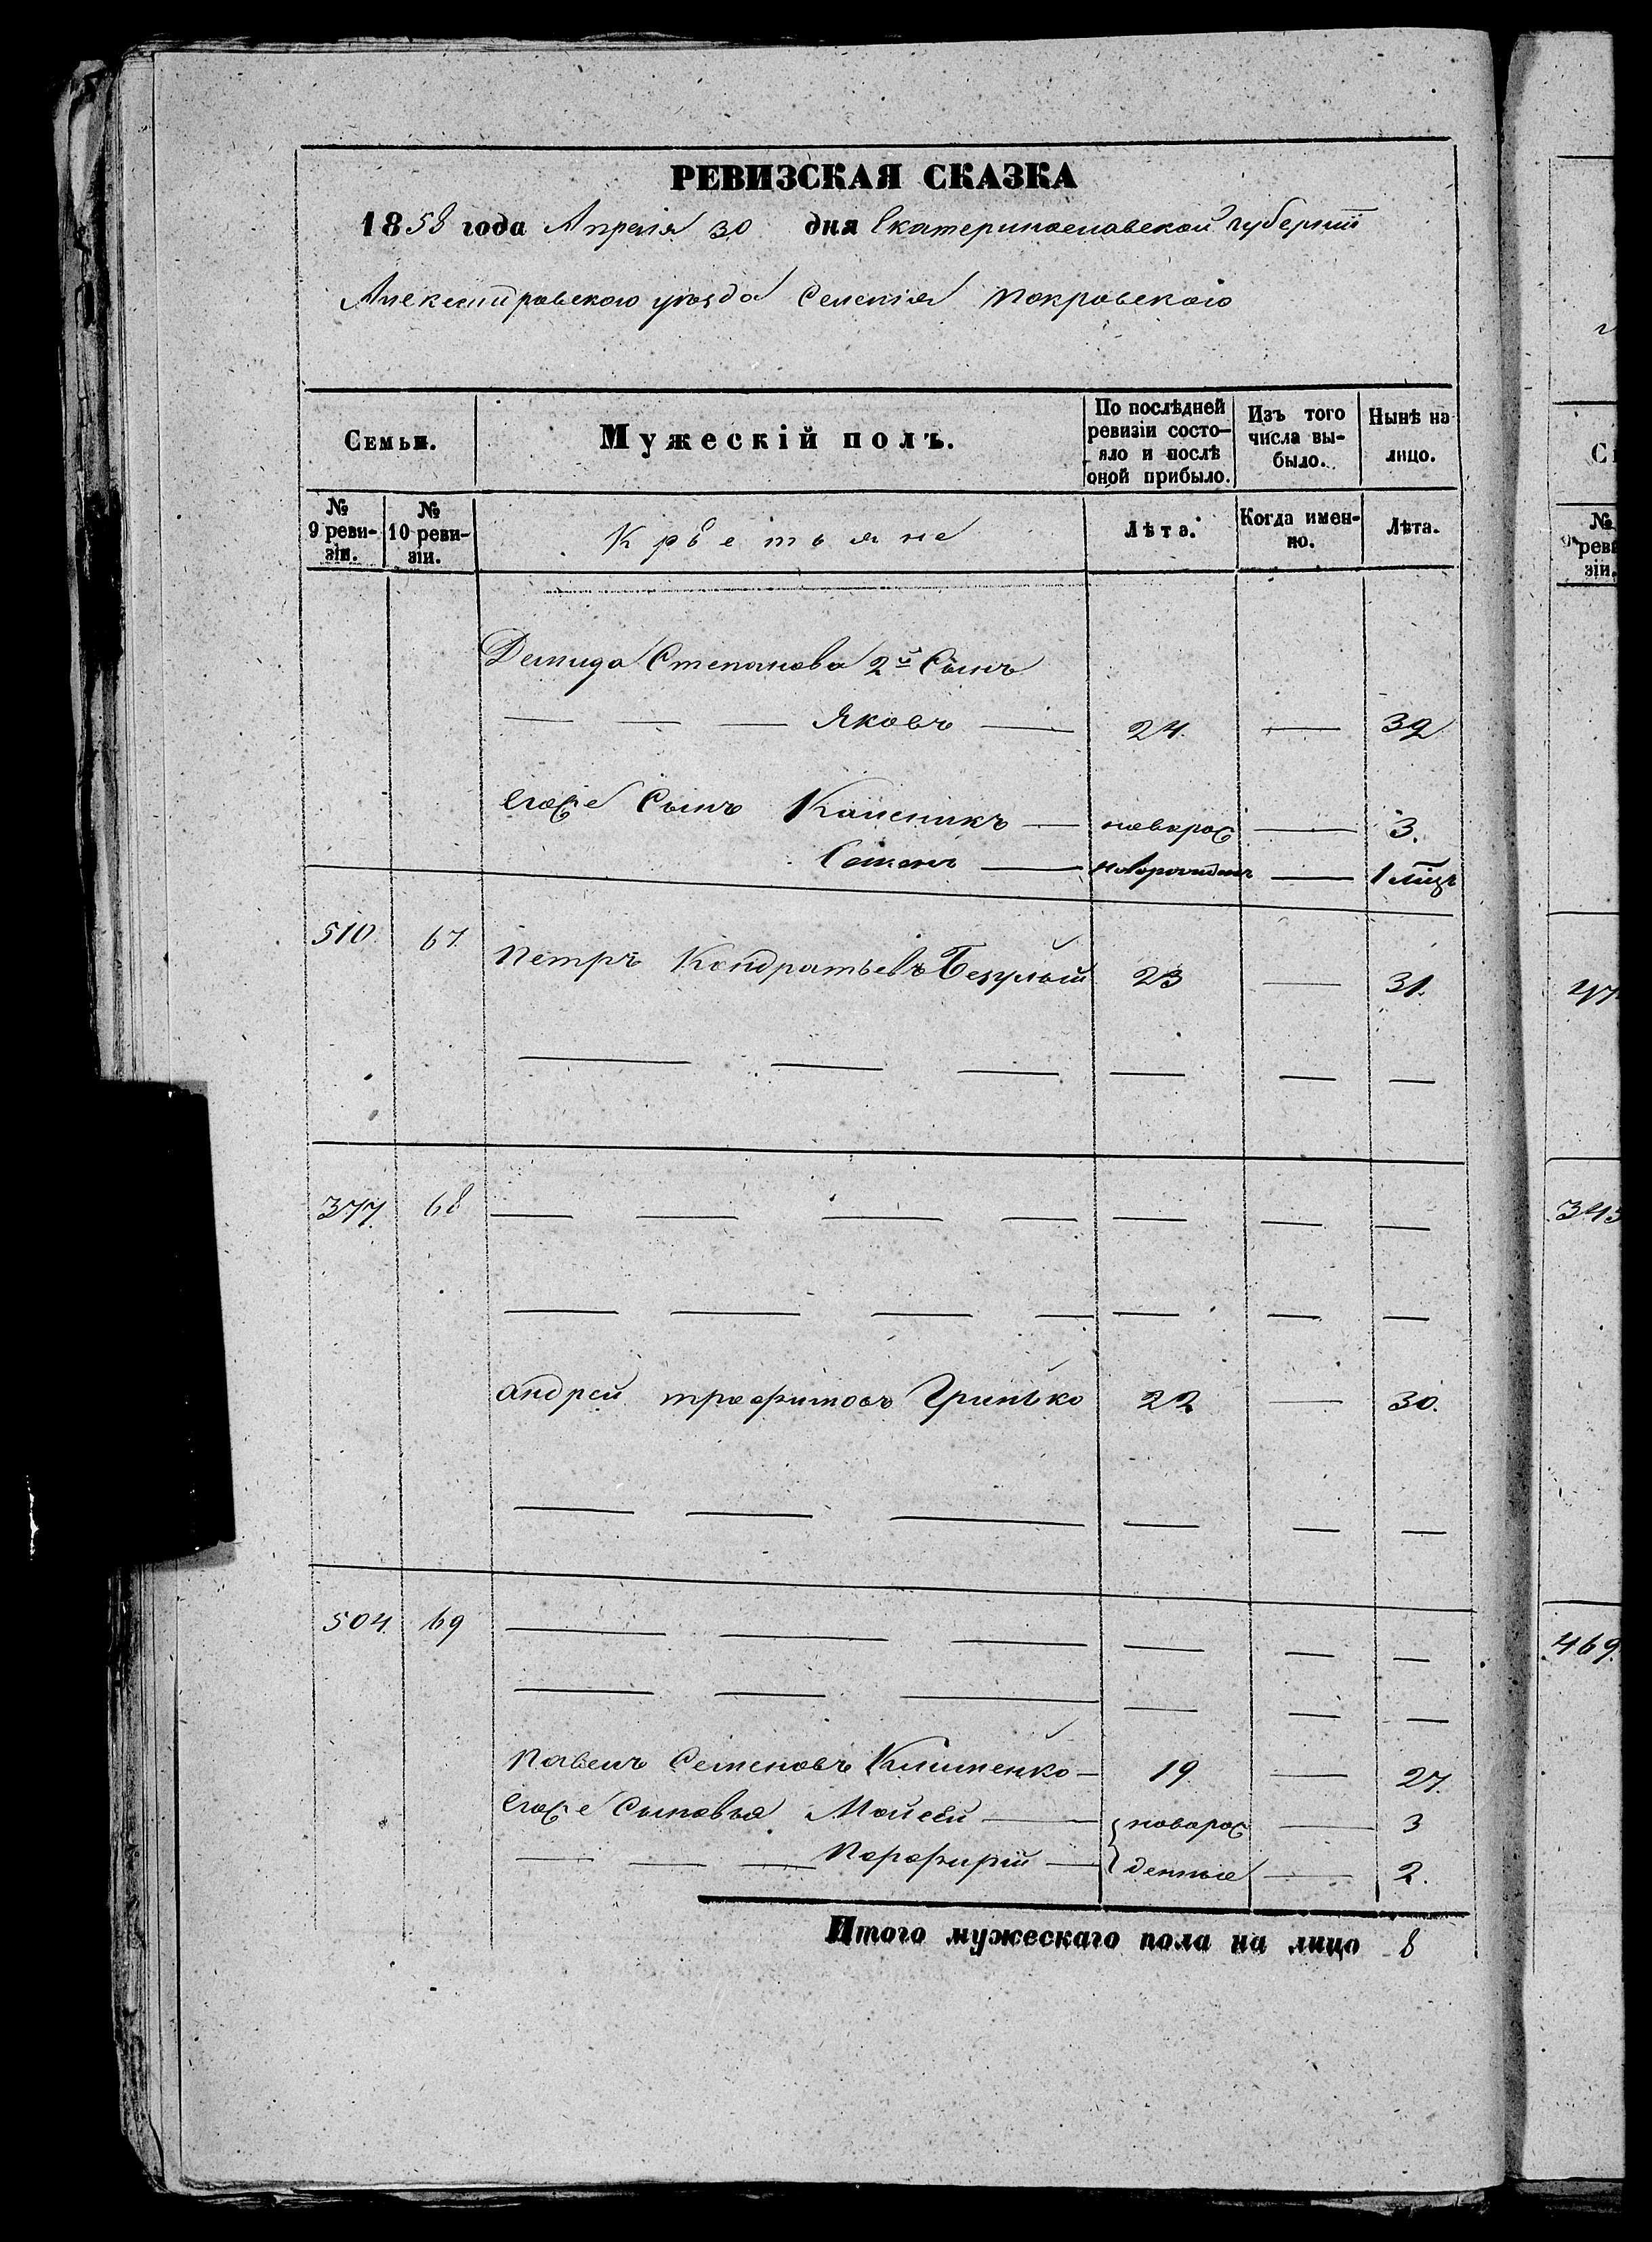 РЕВИЗСКАЯ СКАЗКА
1858 года Апреля 30 дня Екатеринославской губернии
Александровскаго уезда Селенія Покровскаго
Семьи.
Мужескій полъ.
По послѣдней ревизіи состояло и послѣ оной прибыло.
Изъ того числа выбыло.
Нынѣ на лицо.
№ 9 ревизіи.
№ 10 ревизіи.
Крестьяне
Лѣта.
Когда именно.
Лѣта.
Демида Степанова 2й Сынъ
— — — Яковъ — 24. — 32
Егоже Сынъ Каленикъ — новорож — 3.
Семенъ — новорожденъ — 1 мѣсц
510. 67. Петръ Кондратьевъ Безулый 23 — 31.
— — — — — —
377. 68 — — — — — — —
— — — — — — —
Андрей Трофимовъ Гринько 22 — 30.
— — — — — —
504. 69 — — — — — —
— — — — — —
Павелъ Семеновъ Клименко — 19 — 27.
Егоже Сыновья Мойсей — новорож — 3
— — — Порфирій — денные — 2.
Итого мужескаго пола на лицо 8
47
343
469.
№
реви
зіи.